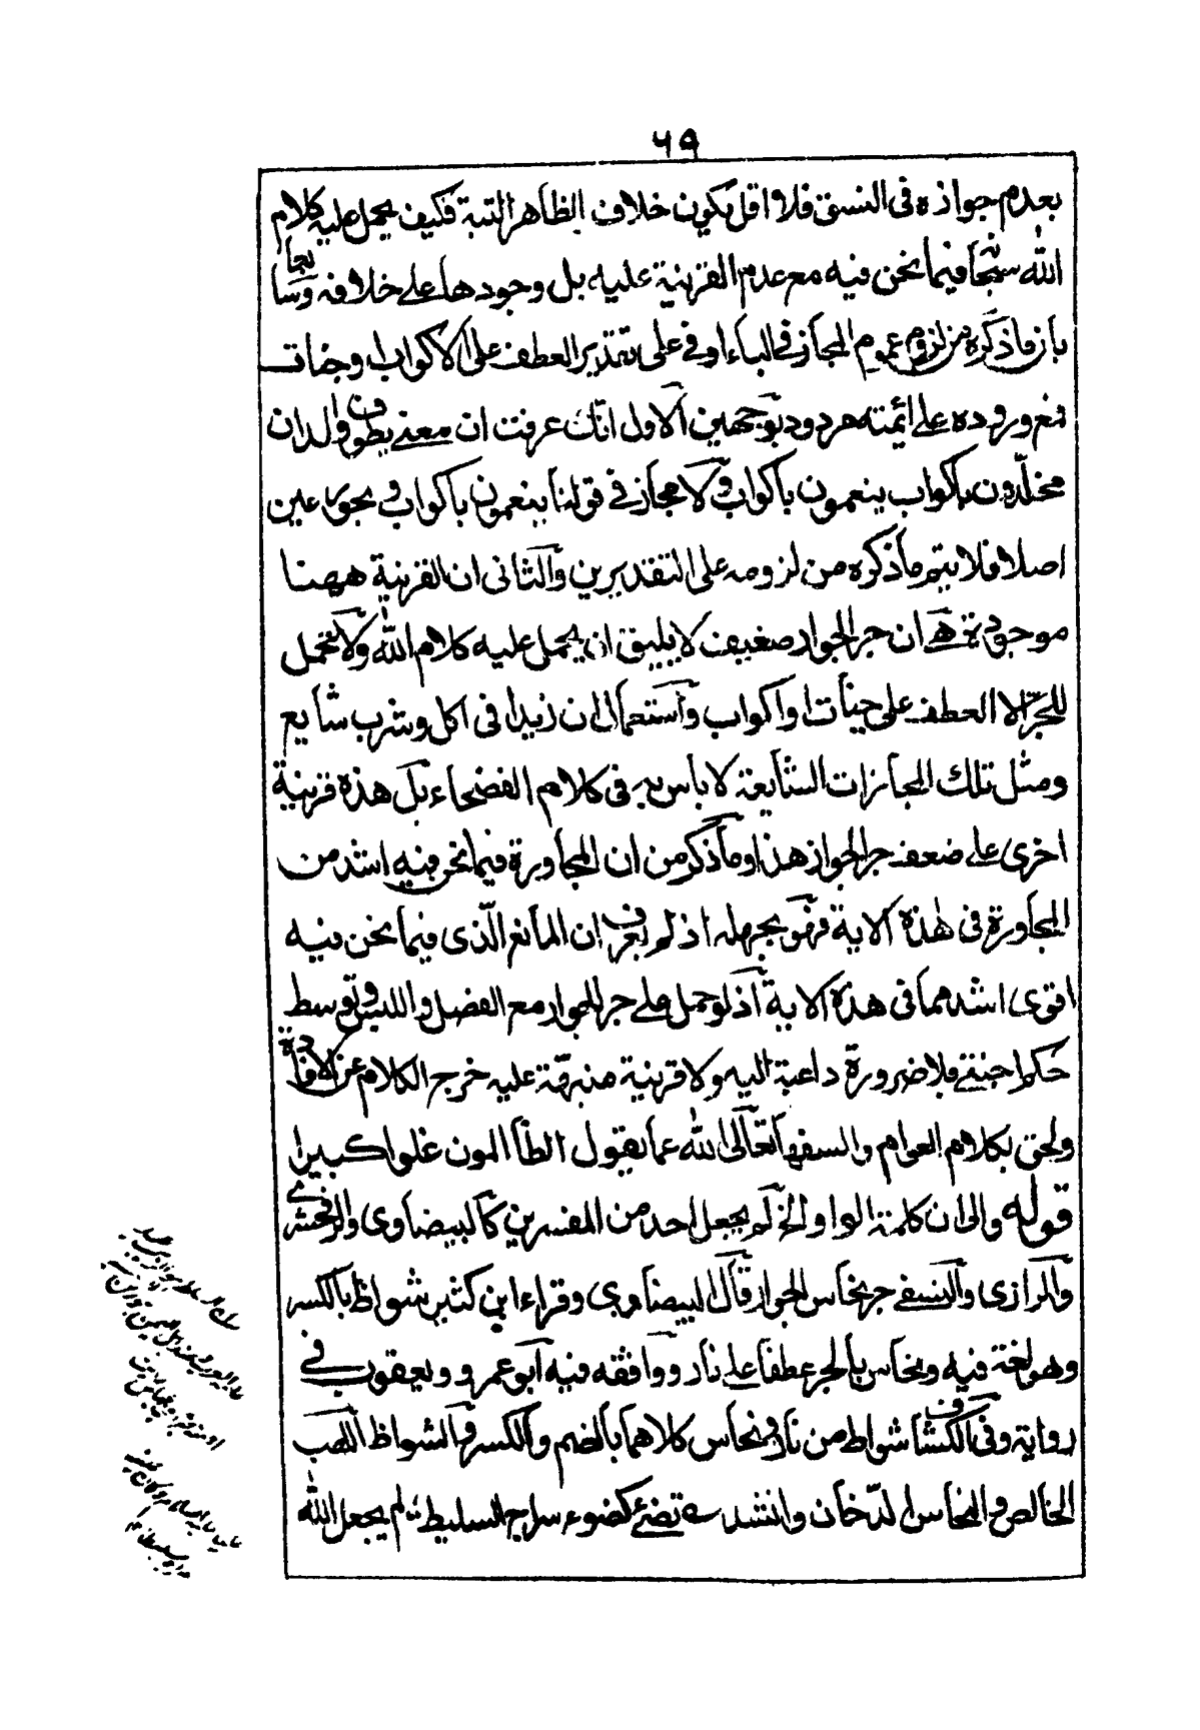 ٦٩
بعدم جوازه فى النسق فلا اقل يكون خلاف الظاهر البتة فكيف يحمل عليه كلام
الله سبحانه فيما نحن فيه مع عدم القرينة عليه بل وجودها على خلافه
بان ماذكره من لزوم عموم المجاز فى الباء او فى على تقدير العطف على الاكواب او جنات
مع وروده على ائمته مردود بوجهين الاول انك عرفت ان معنى يطوف ولدان
مخلّدون باكواب ينعمون باكواب ولا مجاز فى قولنا ينعمون باكواب و بحور عين
اصلا فلا يتم ماذكره من لزومه على التقديرين والثانى ان القرينة ههنا
موجودة هى ان جر الجوار ضعيف لا يليق ان يحمل عليه كلام الله ولا محمل
للجرّ الا العطف على جنات او اكواب واستعمال ان زيدا فى اكل وشرب شايع
ومثل تلك المجازات الشايعة لا باس به فى كلام الفصحاء بل هذه قرينة
اخرى على ضعف جر الجوار هذا وما ذكر من ان المجاورة فيما نحن فيه اشد من
المجاورة فى هذه الاية فهو بجهله اذ لم يعرف ان المانع الّذى فيما نحن فيه
اقوى اشد مما فى هذه الاية اذ لو حمل على جر الجوار مع الفصل واللبس وتوسط
حكم اجنبى بلا ضرورة داعية اليه ولا قرينة منبهّة عليه خرج الكلام عن الافادة
ولحق بكلام العوام والسفها تعالى الله عما يقول الظالمون علوا كبيرا
قوله والى ان كلمة الواو الخ لم يجعل احد من المفسرين كالبيضاوى والزمخشرى
والرازى والنسفى جر نحاس للجوار قال البيضاوى وقراء ابن كثير شواظ بالكسر
وهو لغة فيه ونحاس بالجر عطفا على نار ووافقه فيه ابو عمرو ويعقوب فى
رواية وفى الكشاف شواظ من نار ونحاس كلاهما بالضم والكسر والشواظ اللهب
الخالص والنحاس الدّخان وانشد تضئ كضوء سراج السليط لم يجعل الله